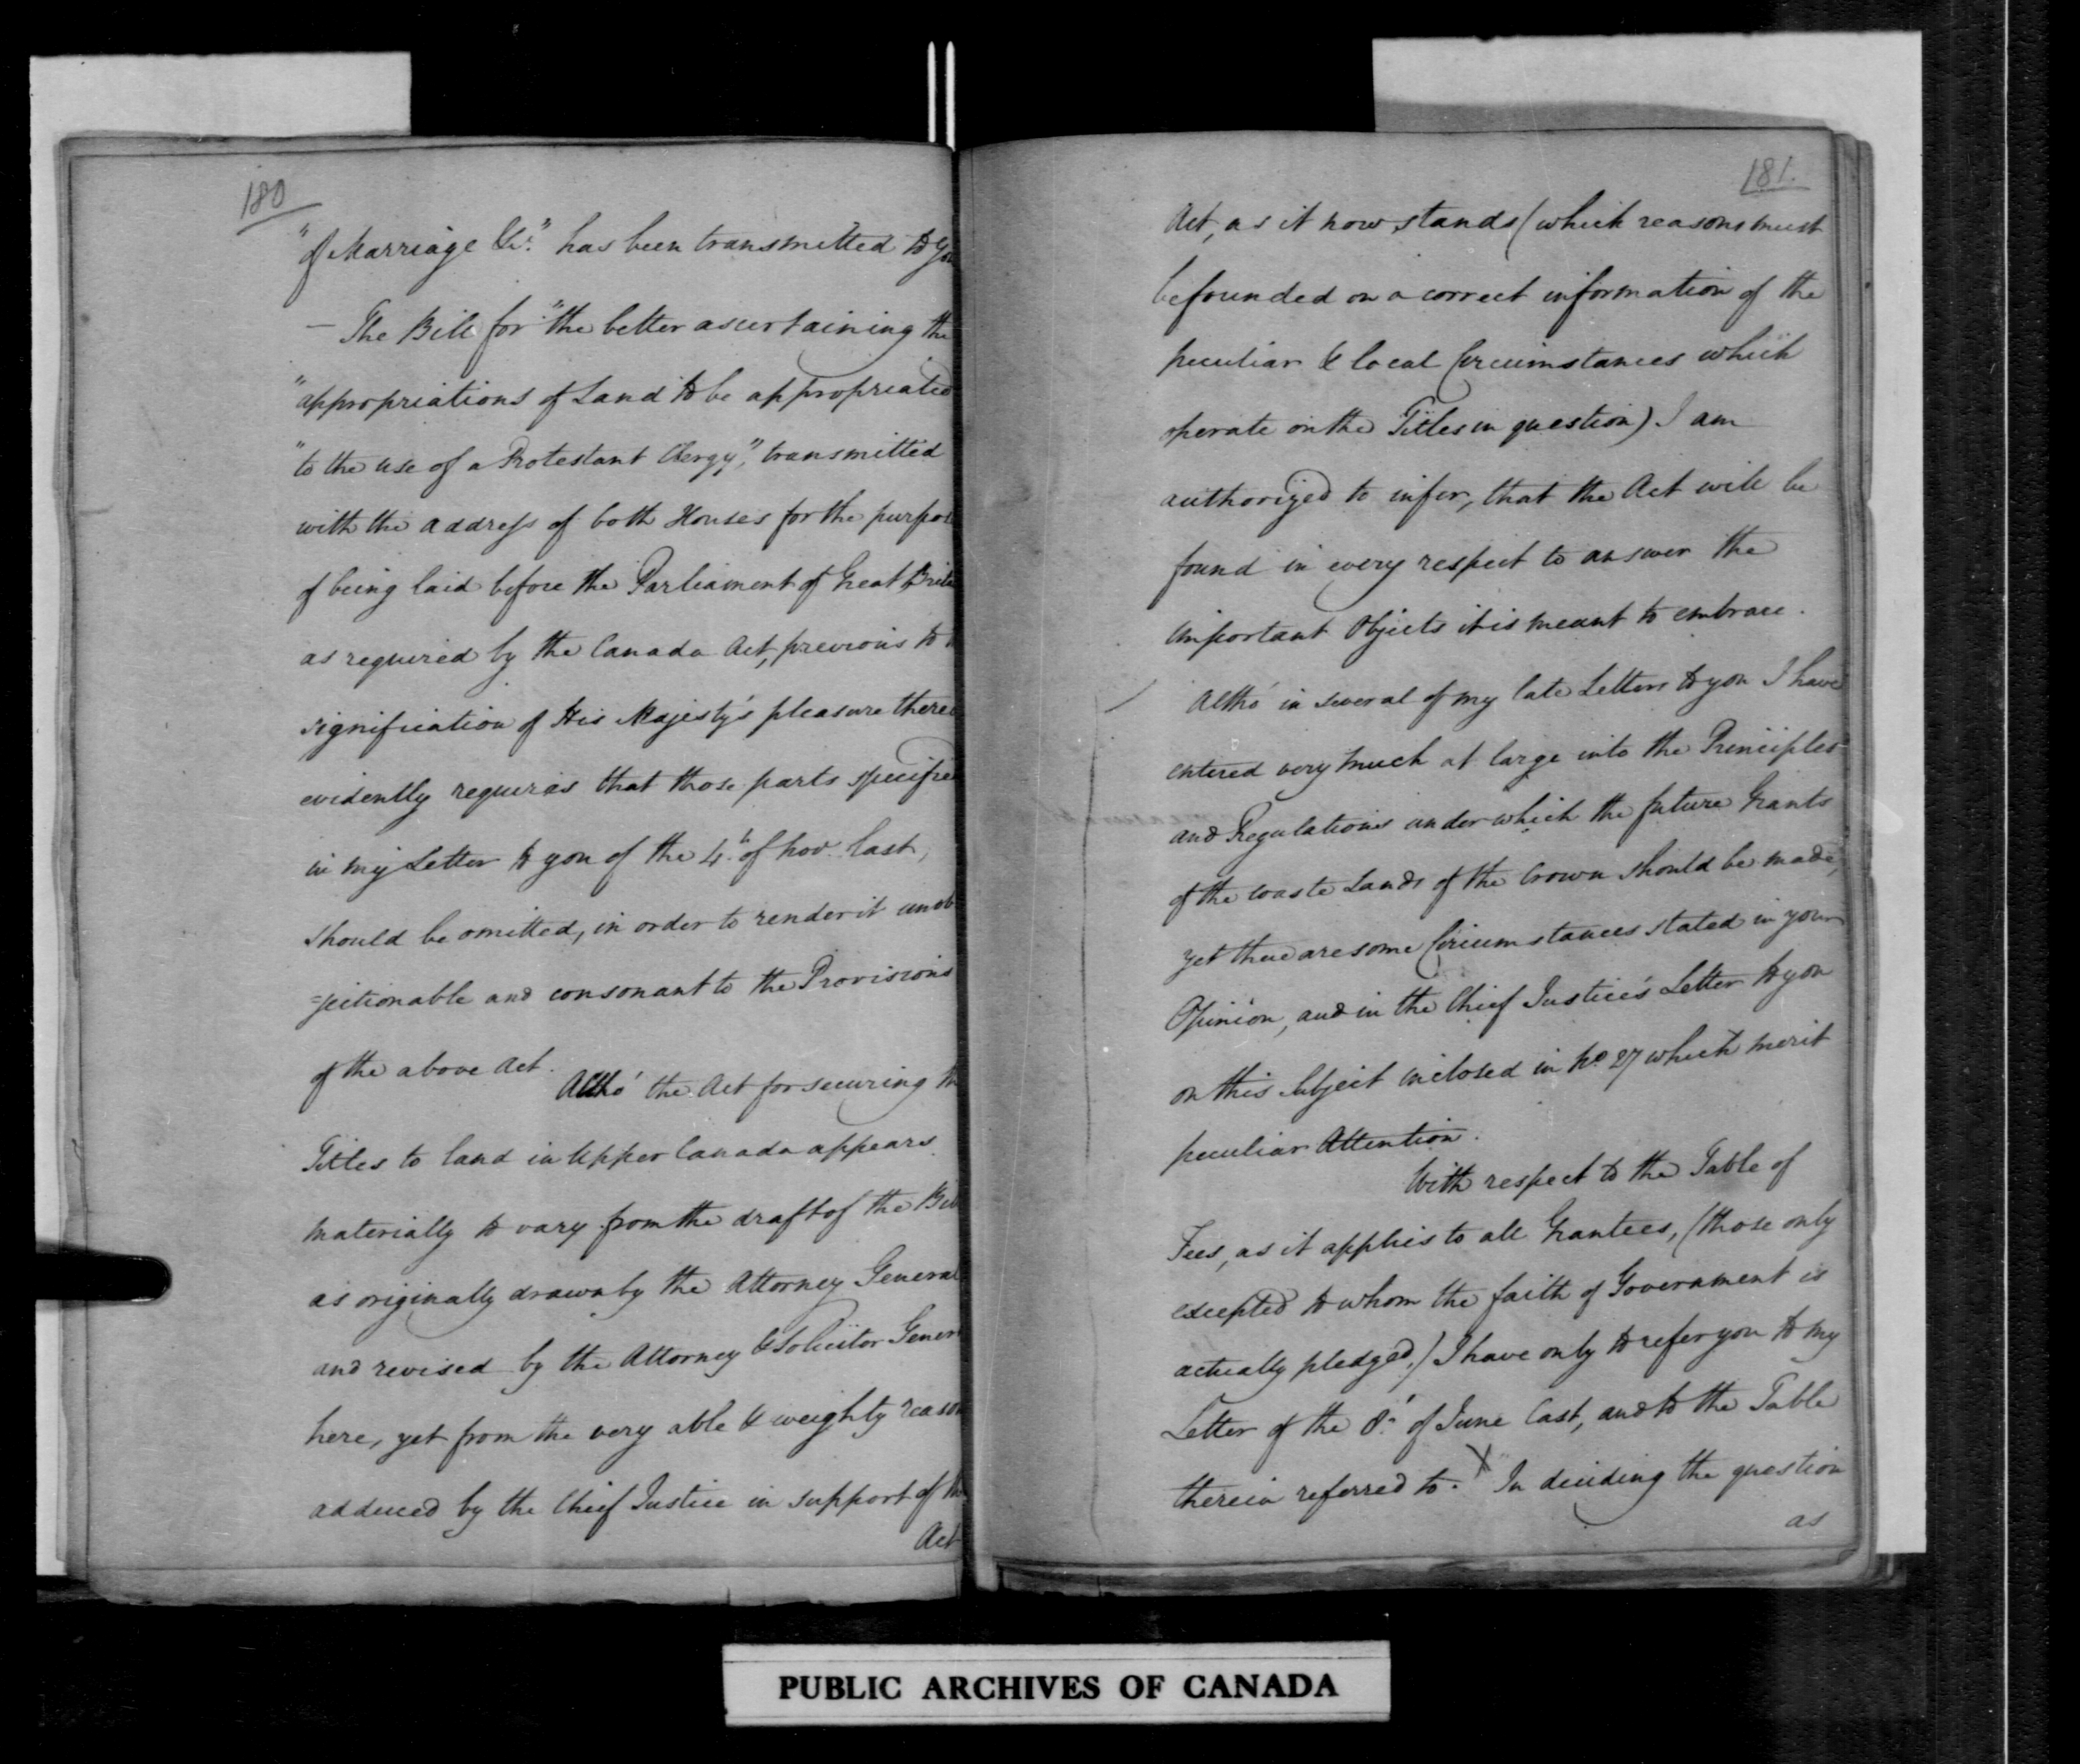 180
"of Marriage &c." has been transmitted to you
— The Bill for "the better ascertaining the
"appropriations of Land to be appropriated
"to the use of a Protestant Clergy," transmitted
with the address of both Houses for the purpos
of being laid before the Parliament of Great Brit
as required by the Canada Act, previous to
signification of His Majesty's pleasure there
evidently requires that those parts specified
in my Letter to you of the 4th of Nov. last,
should be omitted, in order to render it unob
=jectionable and consonant to the Provisions
of the above Act.
Altho' the Act for securing th
Titles to land in Upper Canada appears
materially to vary from the draft of the Bill
as originally drawn by the Attorney General
and revised by the Attorney & Solicitor Gener
here, yet from the very able & weighty reason
adduced by the Chief Justice in support of the
Act
181.
Act, as it now stands (which reasons must
be founded on a correct information of the
peculiar & local Circumstances which
operate on the Titles in question) I am
authorized to infer, that the Act will be
found in every respect to answer the
important Objects it is meant to embrace.
Altho' in several of my late Letters to you I have
entered very much at large into the Principles
and Regulations under which the future Grants
of the waste Lands of the Crown should be made,
yet there are some Circumstances stated in your
Opinion, and in the Chief Justice's Letter to you
on this subject inclosed in No. 27 which merit
peculiar Attention.
With respect to the Table of
Fees, as it applies to all Grantees, (those only
excepted to whom the faith of Government is
actually pledged,) I have only to refer you to my
Letter of the 8. of June last, and to the Table
therein referred to. X In deciding the question
as
PUBLIC ARCHIVES OF CANADA